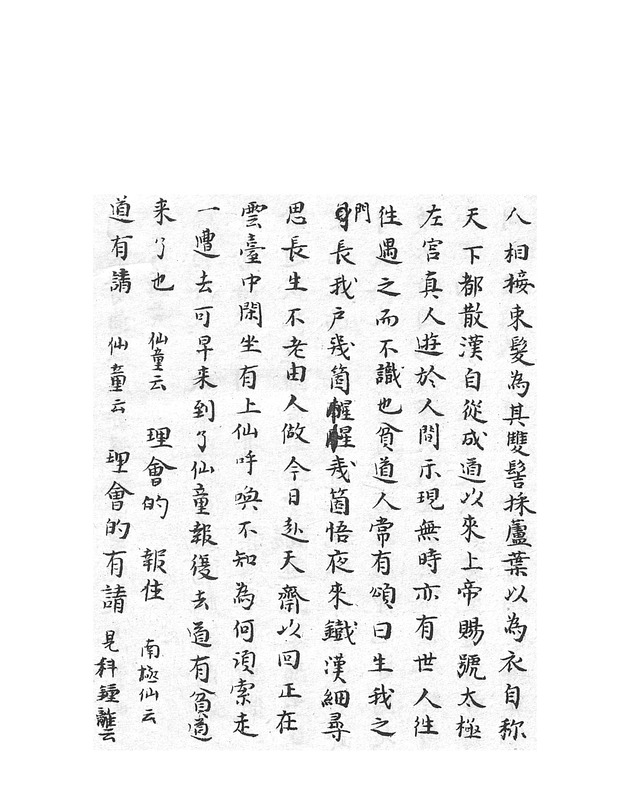 人相接束髮為其雙髻採蘆葉以為衣自称
天下都散漢自從成道以來上帝賜號太極
左宮真人遊於人間示現無時亦有世人徃
徃遇之而不識也貧道人常有頌曰生我之
門長我戸幾箇惺惺幾箇悟夜來鐵漢細尋
思長生不老由人做今日赴天齋以回正在
雲臺中閑坐有上仙呼喚不知為何須索走
一遭去可早来到了仙童報復去道有貧道
来了也 仙童云 理會的 報住 南極仙云
道有請 仙童云 理會的有請 見科鍾離云